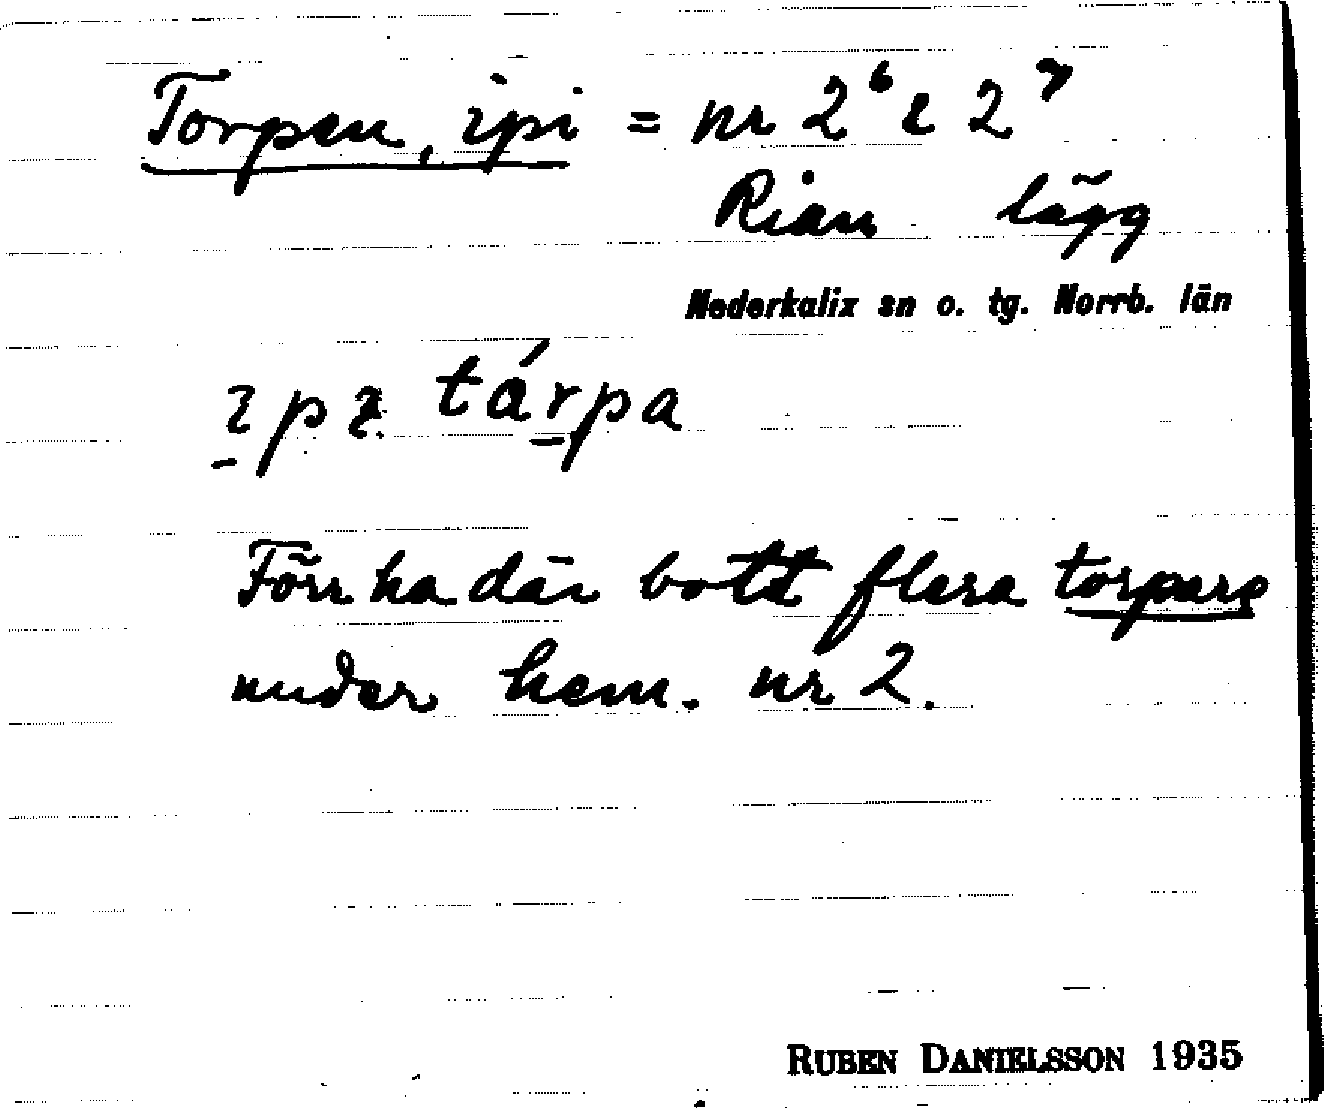 Torpen, ipi = nr 2⁶ & 2⁷
Rian lägg
Nederkalix sn o. tg. Norrb. län
ɩpɩ tárpa
Förr ha där bott flera torpare
under hem. nr 2.
RUBEN DANIELSSON 1935